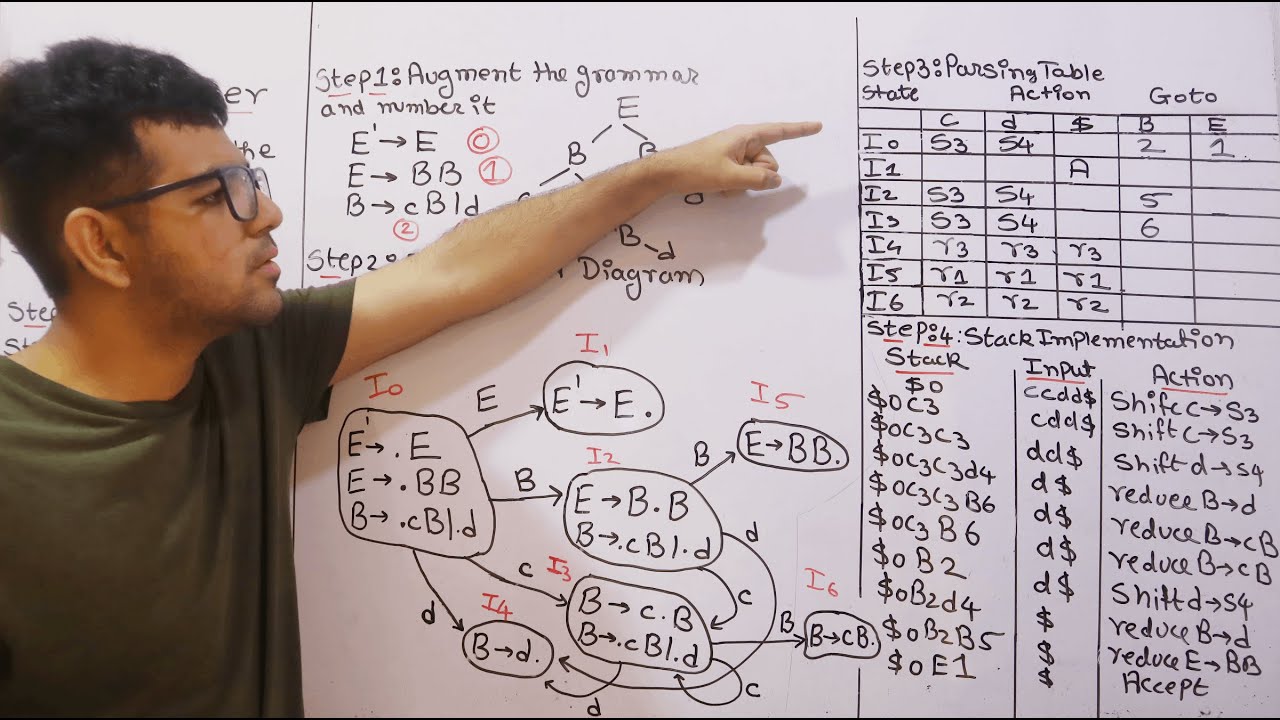 er
the
Ste
St
Step1:Augment the grammar
and number it
E'→ E 0
E→ BB 1
B→ cB|d
2
Step2:
Diagram
E
B B
B d
I0
E'→ .E
E→ .BB
B→ .cB|.d
E
I1
E'→ E.
B
I2
E→B.B
B→.cB|.d
B
I5
E→BB.
d
c
c
I3
B→c.B
B→.cB|.d
B
I6
B→cB.
d
I4
B→d.
d
c
Step3:Parsing Table
State Action Goto
C d $ B E
I0 S3 S4 2 1
I1 A
I2 S3 S4 5
I3 S3 S4 6
I4 r3 r3 r3
I5 r1 r1 r1
I6 r2 r2 r2
Step:4:Stack Implementation
Stack Input Action
$0 ccdd$ Shift C→S3
$0C3 cdd$ Shift C→S3
$0C3C3 dd$ Shift d→S4
$0C3C3d4 d$ reduce B→d
$0C3C3B6 d$ reduce B→cB
$0C3B6 d$ reduce B→cB
$0B2 d$ Shift d→S4
$0B2d4 $ reduce B→d
$0B2B5 $ reduce E→BB
$0E1 $ Accept